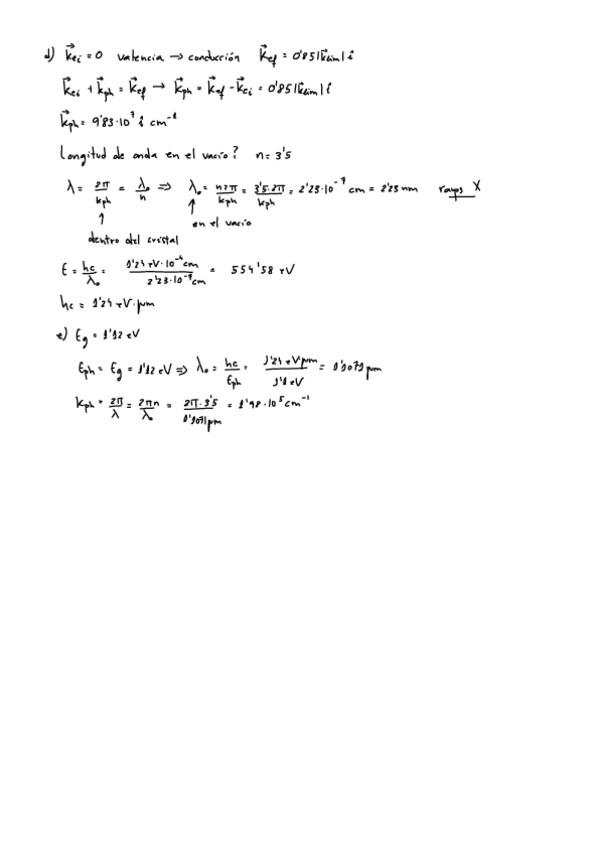 d) k⃗ei = 0 valencia → conducción k⃗ef = 0'85|k⃗lim| î
k⃗ei + k⃗ph = k⃗ef → k⃗ph = k⃗ef - k⃗ei = 0'85|k⃗lim| î
k⃗ph = 9'83·10⁷ î cm⁻¹
Longitud de onda en el vacío? n = 3'5
λ = 2π/kph = λ₀/n ⇒ λ₀ = n2π/kph = 3'5·2π/kph = 2'23·10⁻⁷ cm = 2'23 nm rayos X
↑ ↑
en el vacío
dentro del cristal
E = hc/λ₀ = 1'24 eV·10⁻⁴ cm/2'23·10⁻⁷ cm = 554'58 eV
hc = 1'24 eV·μm
e) Eg = 1'12 eV
Eph = Eg = 1'12 eV ⇒ λ₀ = hc/Eph = 1'24 eV μm/1'1 eV = 1'1071 μm
kph = 2π/λ = 2πn/λ₀ = 2π·3'5/1'1071 μm = 1'98·10⁵ cm⁻¹